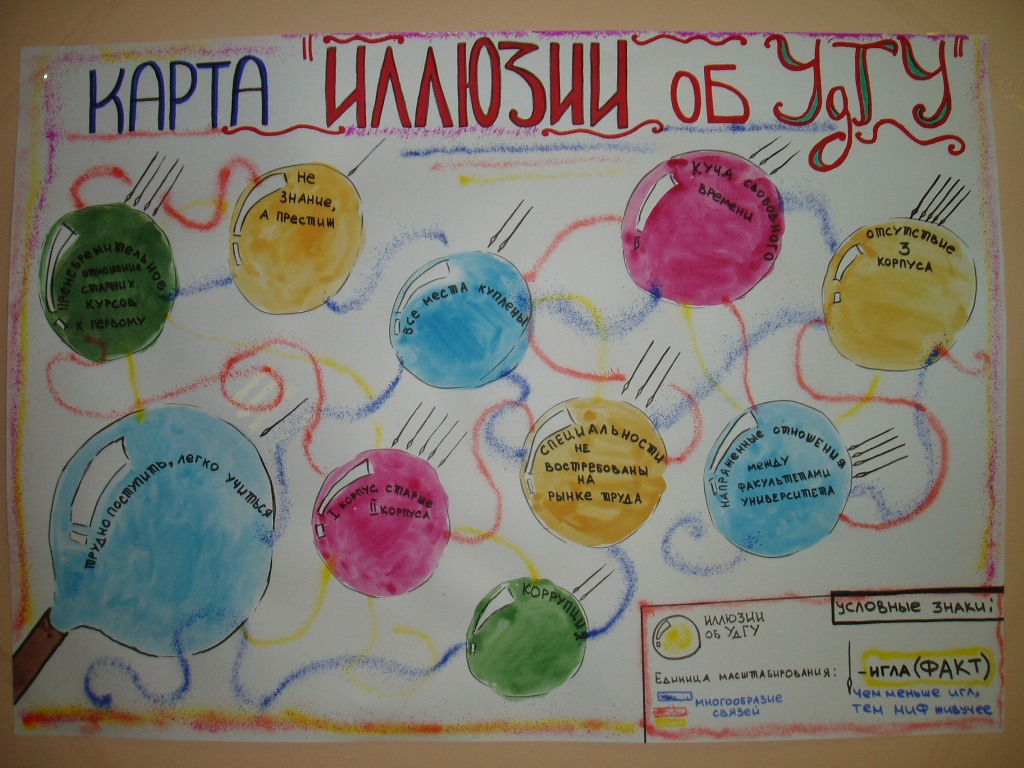 КАРТА "ИЛЛЮЗИИ ОБ УдГУ"
ПРЕНЕБРЕЖИТЕЛЬНОЕ
ОТНОШЕНИЕ
СТАРШИХ
КУРСОВ
К ПЕРВОМУ
НЕ
ЗНАНИЕ,
А ПРЕСТИЖ
ВСЕ МЕСТА КУПЛЕНЫ
КУЧА СВОБОДНОГО
ВРЕМЕНИ
ОТСУТСТВИЕ
3
КОРПУСА
ТРУДНО ПОСТУПИТЬ, ЛЕГКО УЧИТЬСЯ
I КОРПУС СТАРШЕ
II КОРПУСА
СПЕЦИАЛЬНОСТИ
НЕ
ВОСТРЕБОВАНЫ
НА
РЫНКЕ ТРУДА
НАПРЯЖЕННЫЕ ОТНОШЕНИЯ
МЕЖДУ
ФАКУЛЬТЕТАМИ
УНИВЕРСИТЕТА
КОРРУПЦИЯ
УСЛОВНЫЕ ЗНАКИ:
ИЛЛЮЗИИ
ОБ УдГУ
ЕДИНИЦА МАСШТАБИРОВАНИЯ:
МНОГООБРАЗИЕ
СВЯЗЕЙ
-ИГЛА (ФАКТ)
ЧЕМ МЕНЬШЕ ИГЛ,
ТЕМ МИФ ЖИВУЧЕЕ